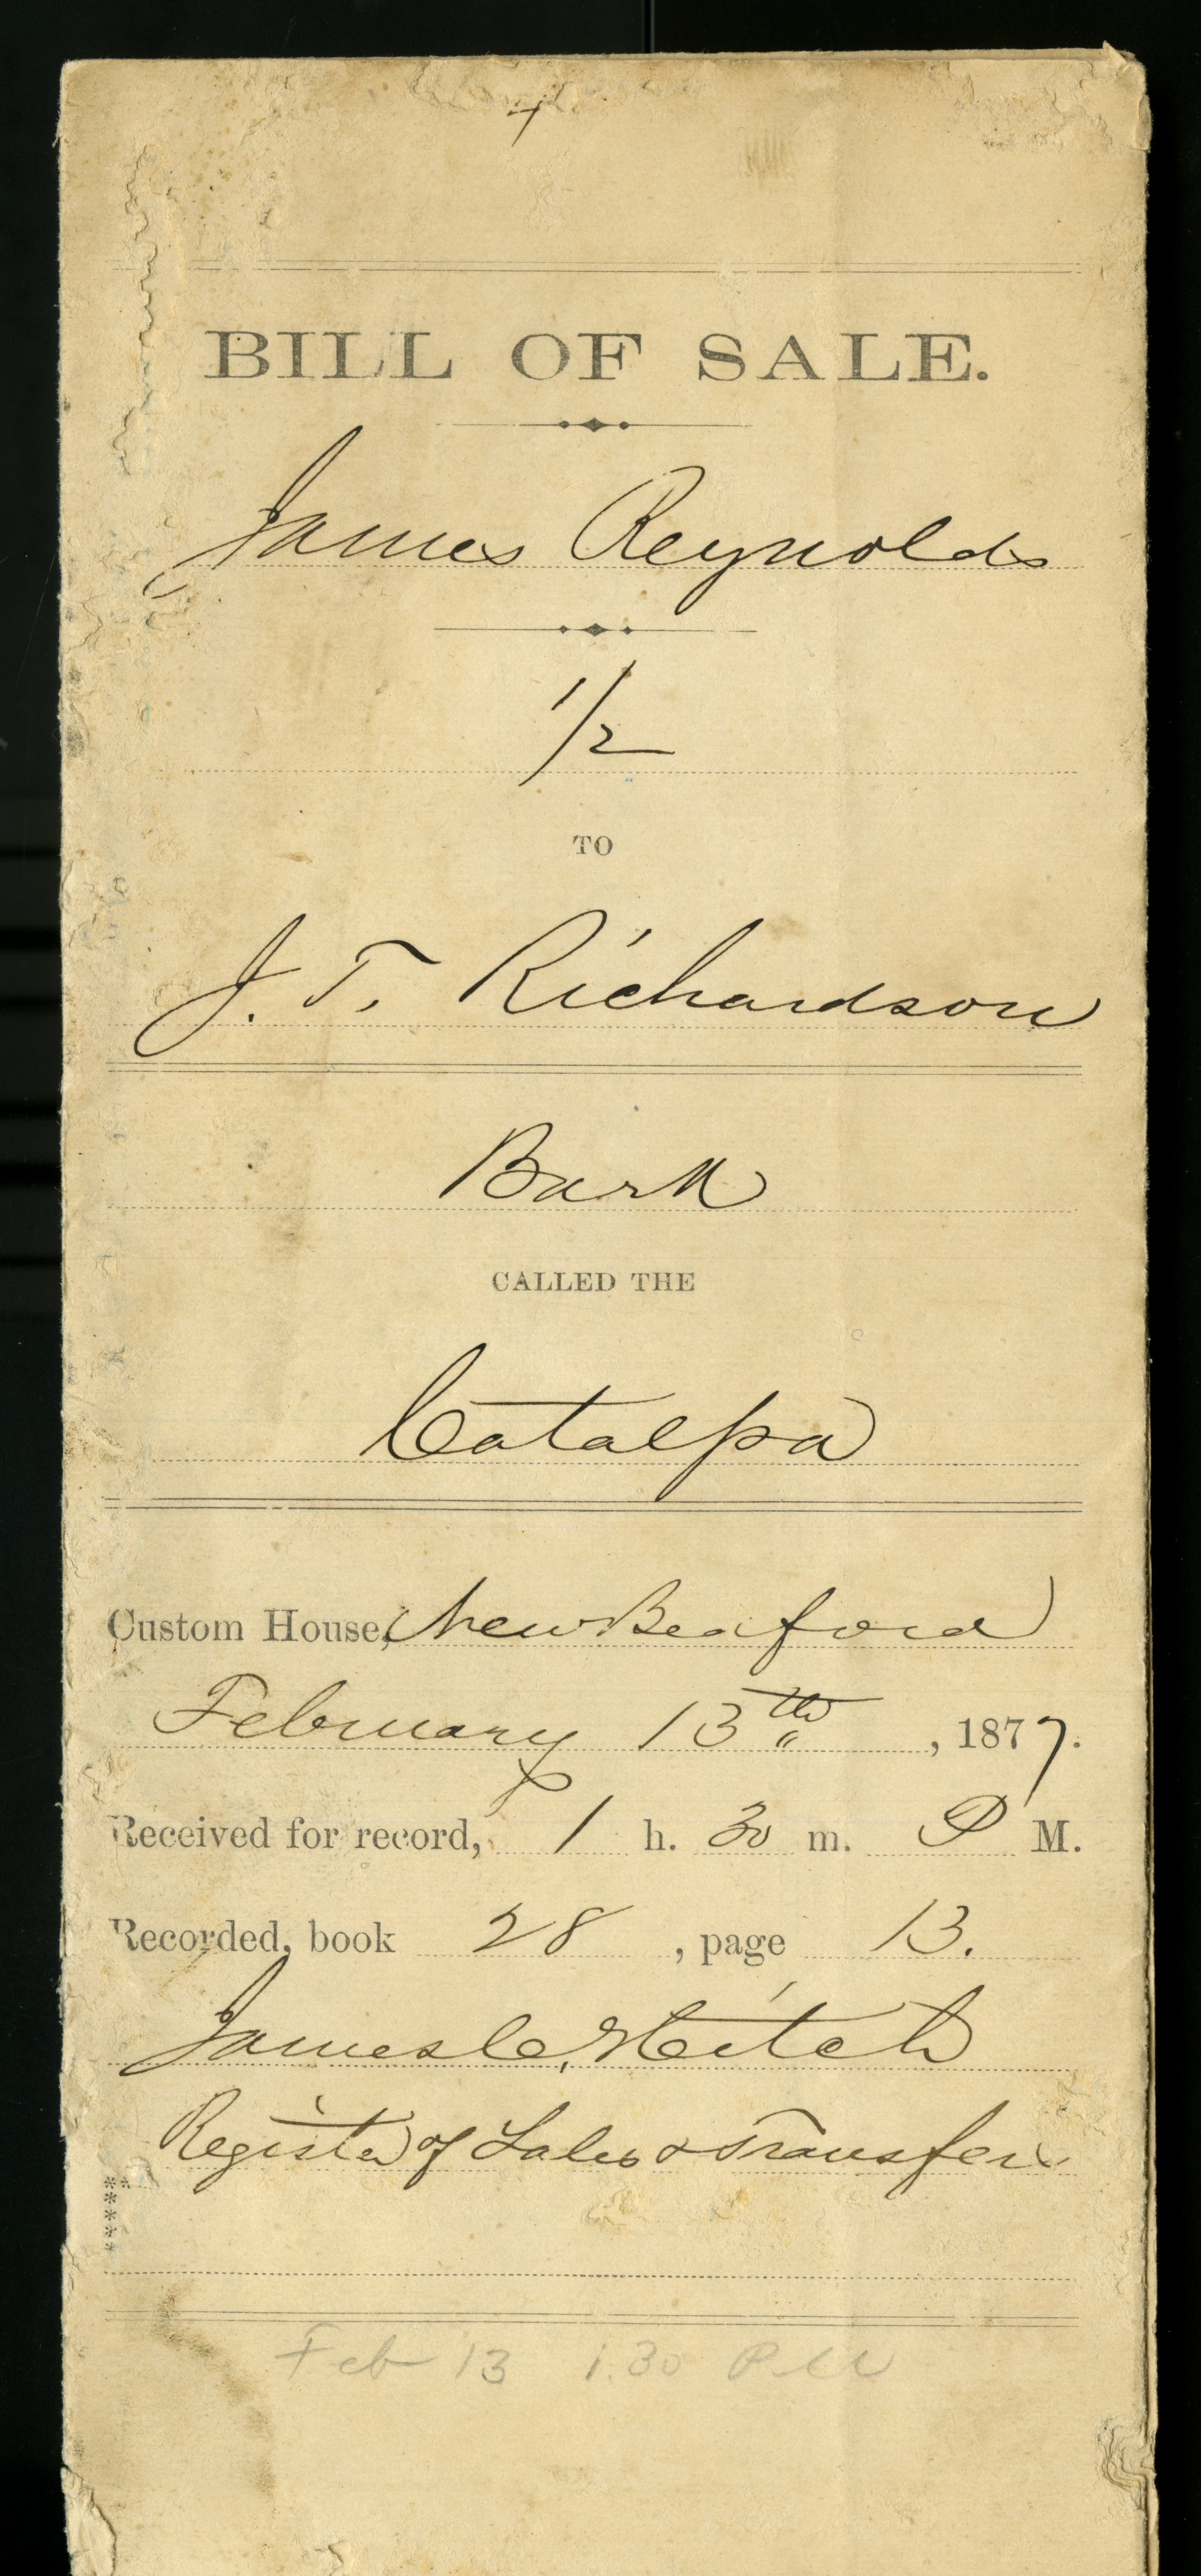 BILL OF SALE.
James Reynolds
1/2
TO
J. T. Richardson
Bark
CALLED THE
Catalpa
Custom House, New Bedford
February 13th, 1877.
Received for record, 1 h. 30 m. P M.
Recorded, book 28, page 13.
James C. Hitch
Register of Sales & Transfers
*****
Feb 13 1.30 PM